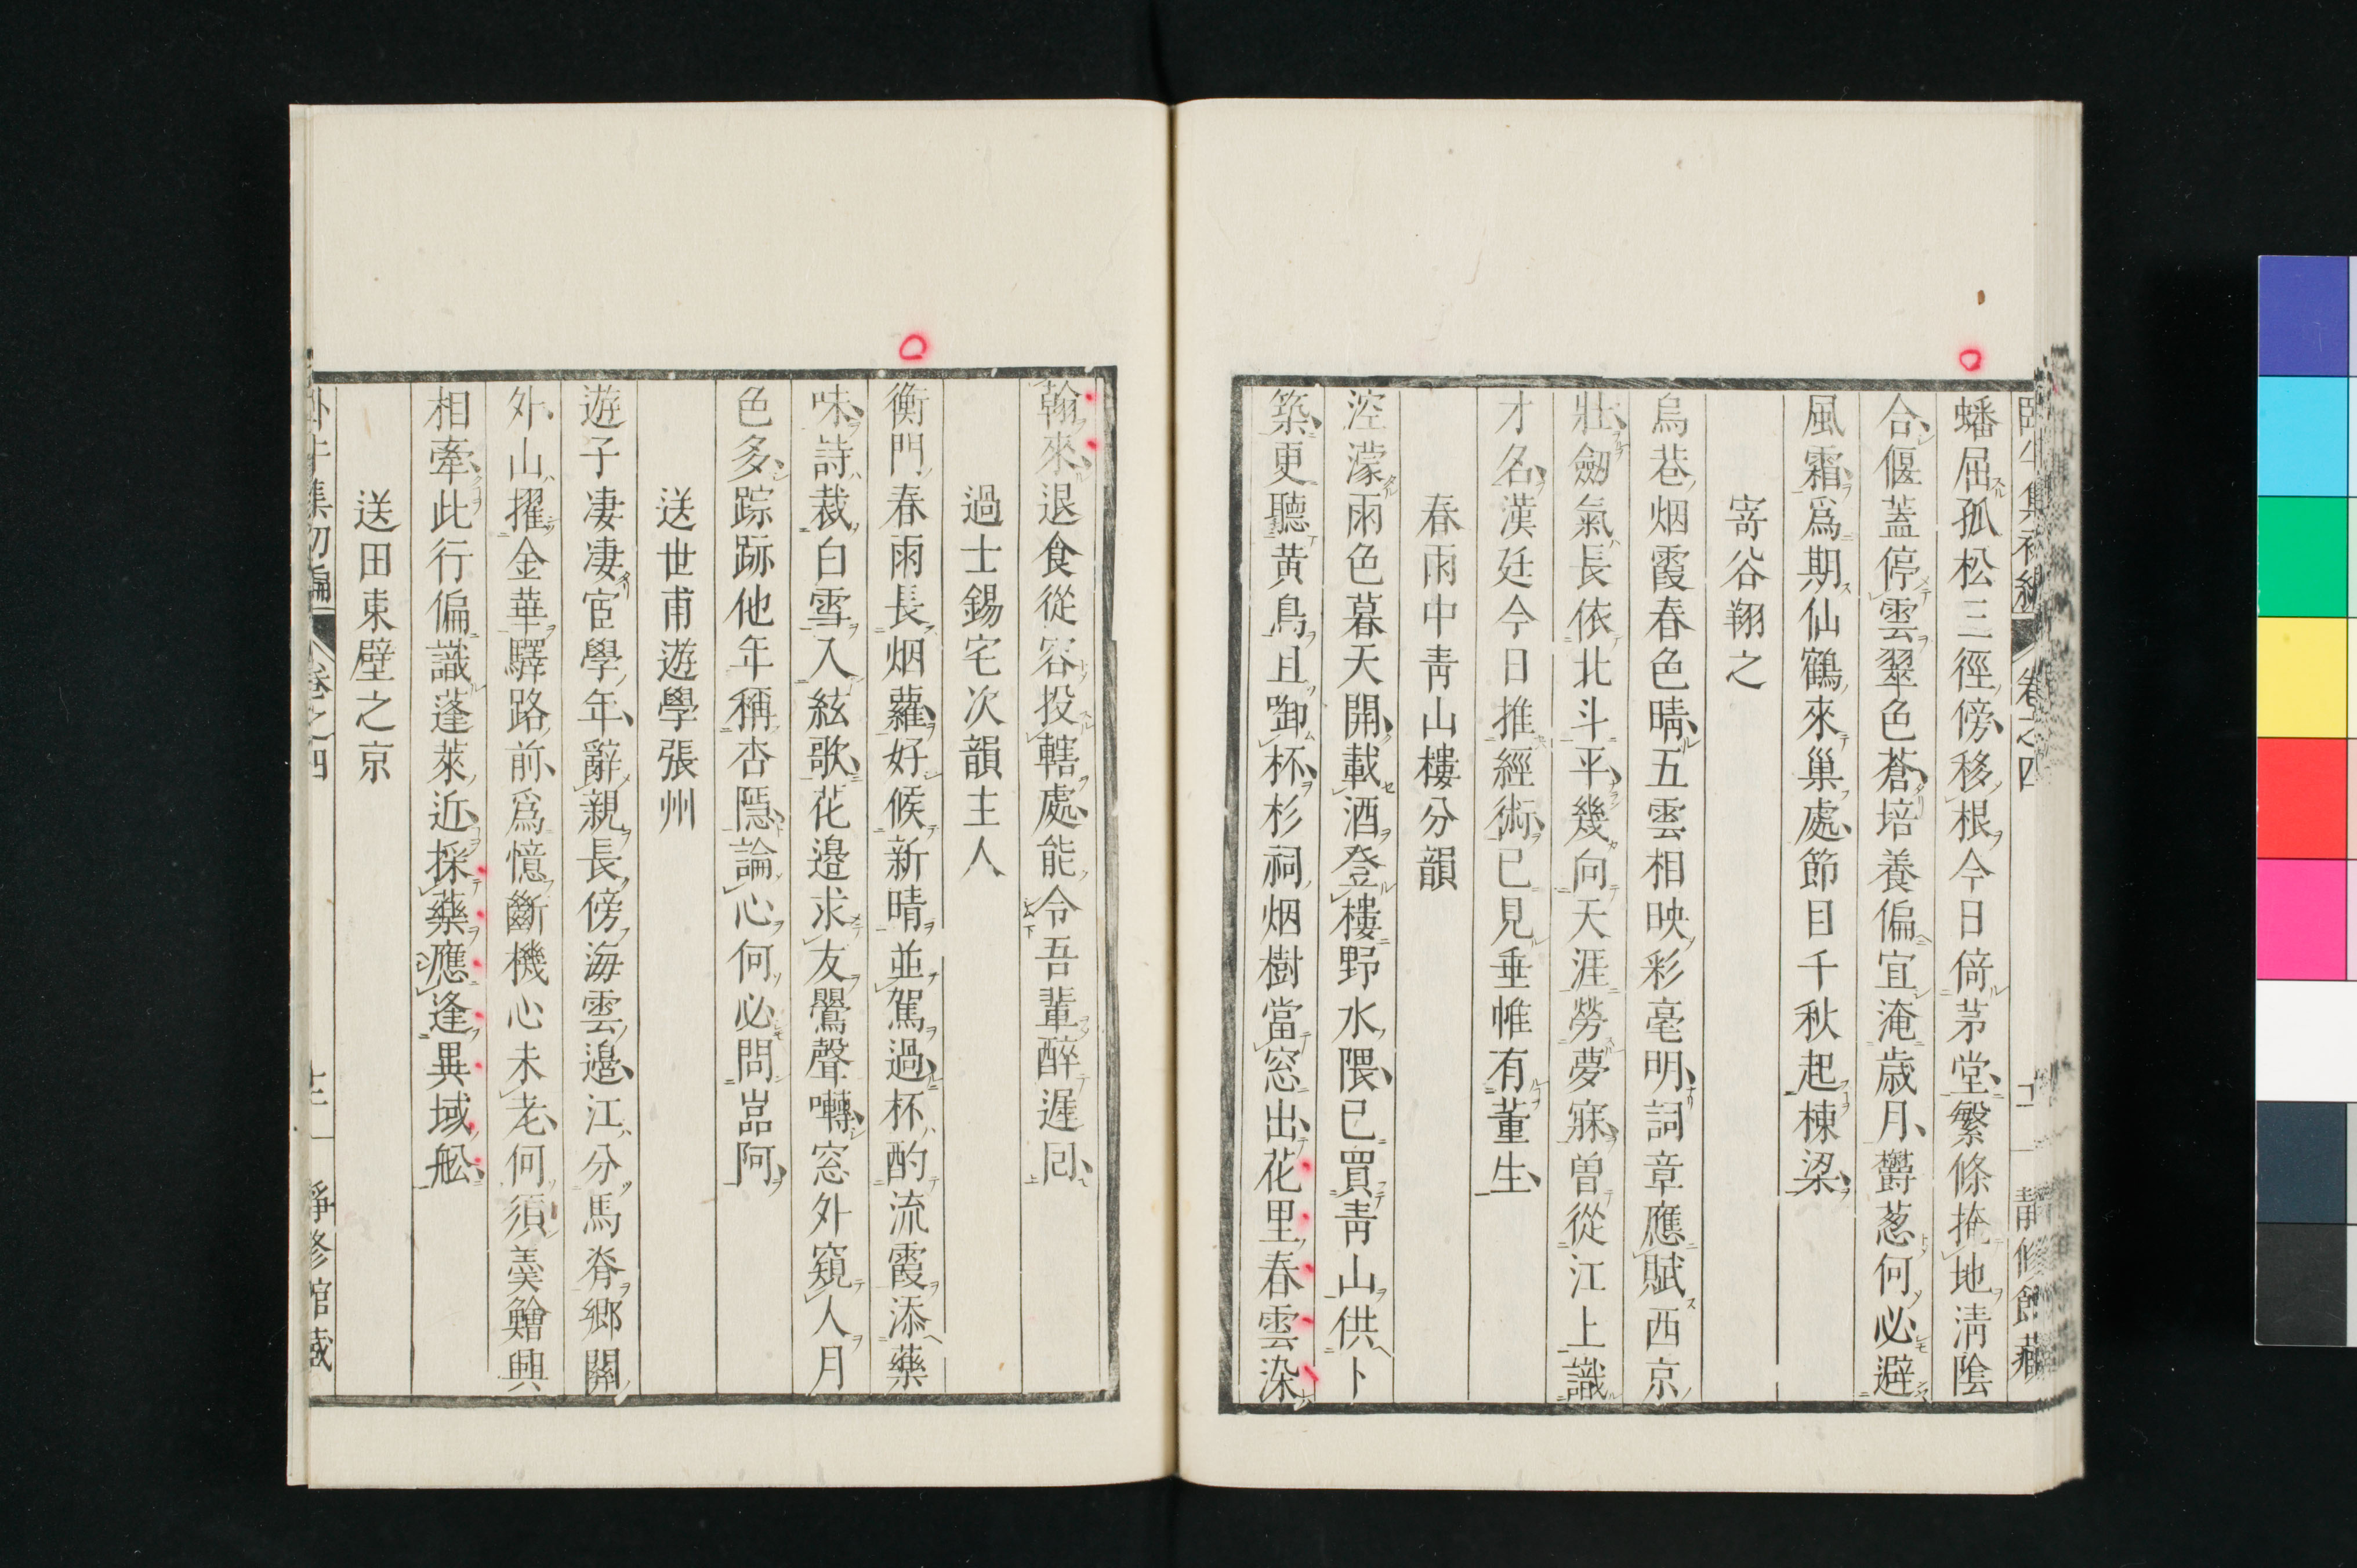 蟠屈孤松三徑傍移根今日倚茅堂繁條掩地淸陰
合偃蓋停雲翠色蒼培養偏宜淹歲月欝葱何必避
風霜爲期仙鶴來巢處節目千秋起棟梁
寄谷翔之
烏巷烟霞春色晴五雲相映彩毫明詞章應賦西京
壯劒氣長依北斗平幾向天涯勞夢寐曽從江上識
才名漢廷今日推經術已見垂帷有董生
春雨中靑山樓分韻
涳濛雨色暮天開載酒登樓野水隈已買靑山供卜
築更聽黃鳥且啣杯杉祠烟樹當窓出花里春雲染
翰來退食從容投轄處能令吾輩醉遲囘
過士錫宅次韻主人
衡門春雨長烟蘿好候新晴並駕過杯酌流霞添藥
味詩裁白雪入絃歌花邉求友鸎聲囀窓外窺人月
色多踪跡他年稱杏隠論心何必問嵓阿
送世甫遊學張州
遊子凄凄宦學年辭親長傍海雲邉江分馬脊鄉關
外山擢金華驛路前爲憶斷機心未老何須羹鱠興
相牽此行偏識蓬萊近採藥應逢異域舩
送田東壁之京
卷之四